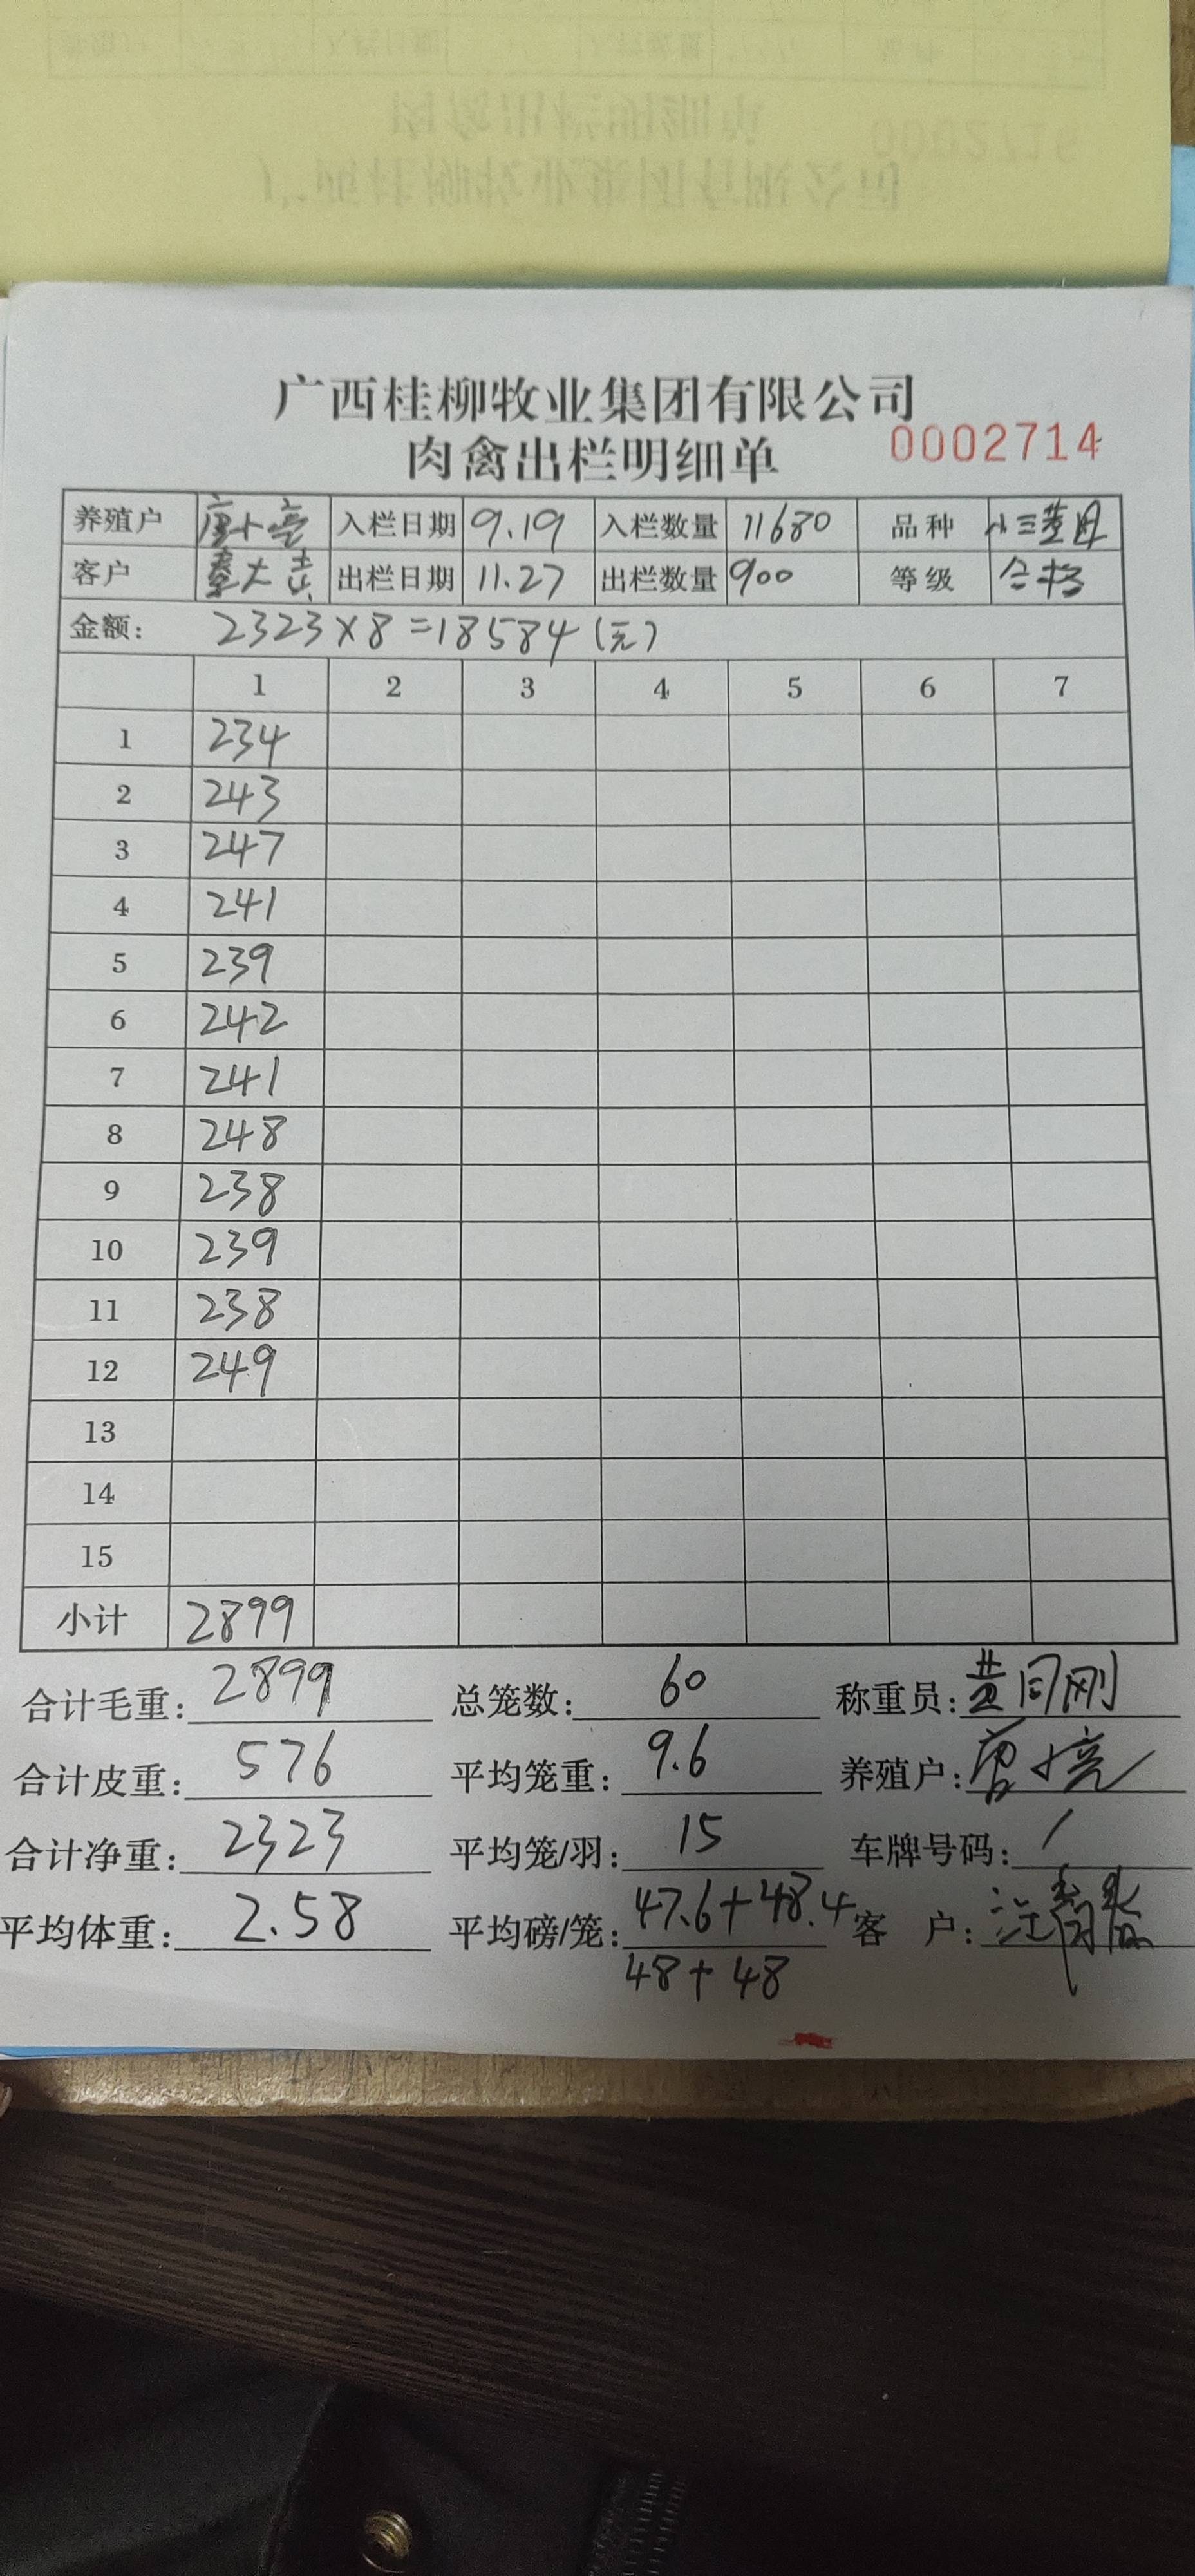 广西桂柳牧业集团有限公司
肉禽出栏明细单 0002714
养殖户 唐小亮 入栏日期 9.19 入栏数量 11680 品种
客户 出栏日期 11.27 出栏数量 900 等级 合格
金额: 2323×8=18584(元)
1 2 3 4 5 6 7
1 234
2 243
3 247
4 241
5 239
6 242
7 241
8 248
9 238
10 239
11 238
12 249
13
14
15
小计 2899
合计毛重: 2899 总笼数: 60 称重员:
合计皮重: 576 平均笼重: 9.6 养殖户: 唐小亮
合计净重: 2323 平均笼/羽: 15 车牌号码: /
平均体重: 2.58 平均磅/笼: 47.6+48.4 客 户:
48+48